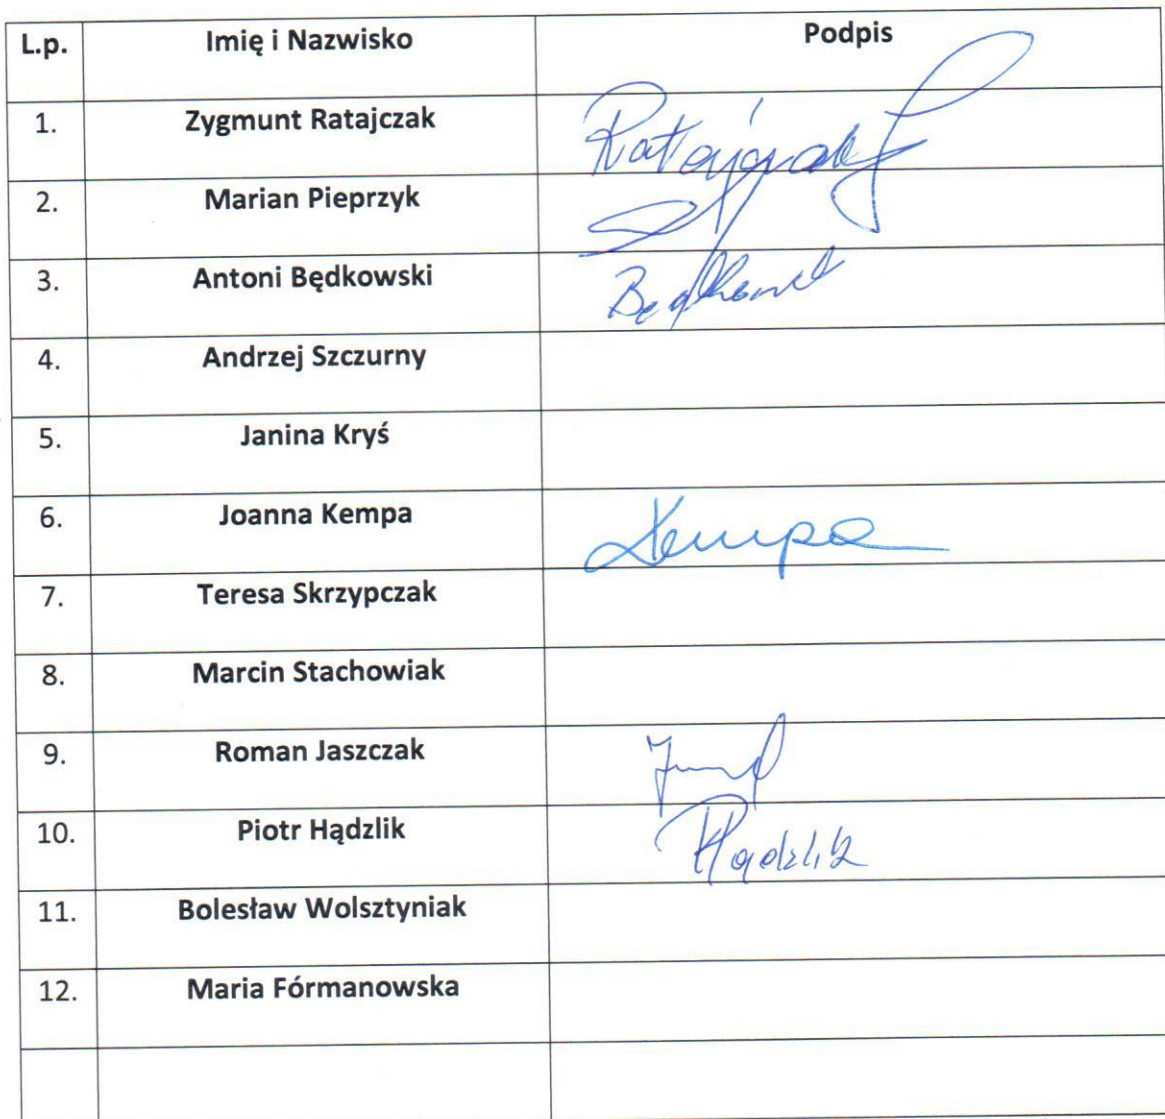 L.p. Imię i Nazwisko Podpis
1. Zygmunt Ratajczak Ratajczak
2. Marian Pieprzyk
3. Antoni Będkowski
4. Andrzej Szczurny
5. Janina Kryś
6. Joanna Kempa Kempa
7. Teresa Skrzypczak
8. Marcin Stachowiak
9. Roman Jaszczak
10. Piotr Hądzlik PHądzlik
11. Bolesław Wolsztyniak
12. Maria Fórmanowska